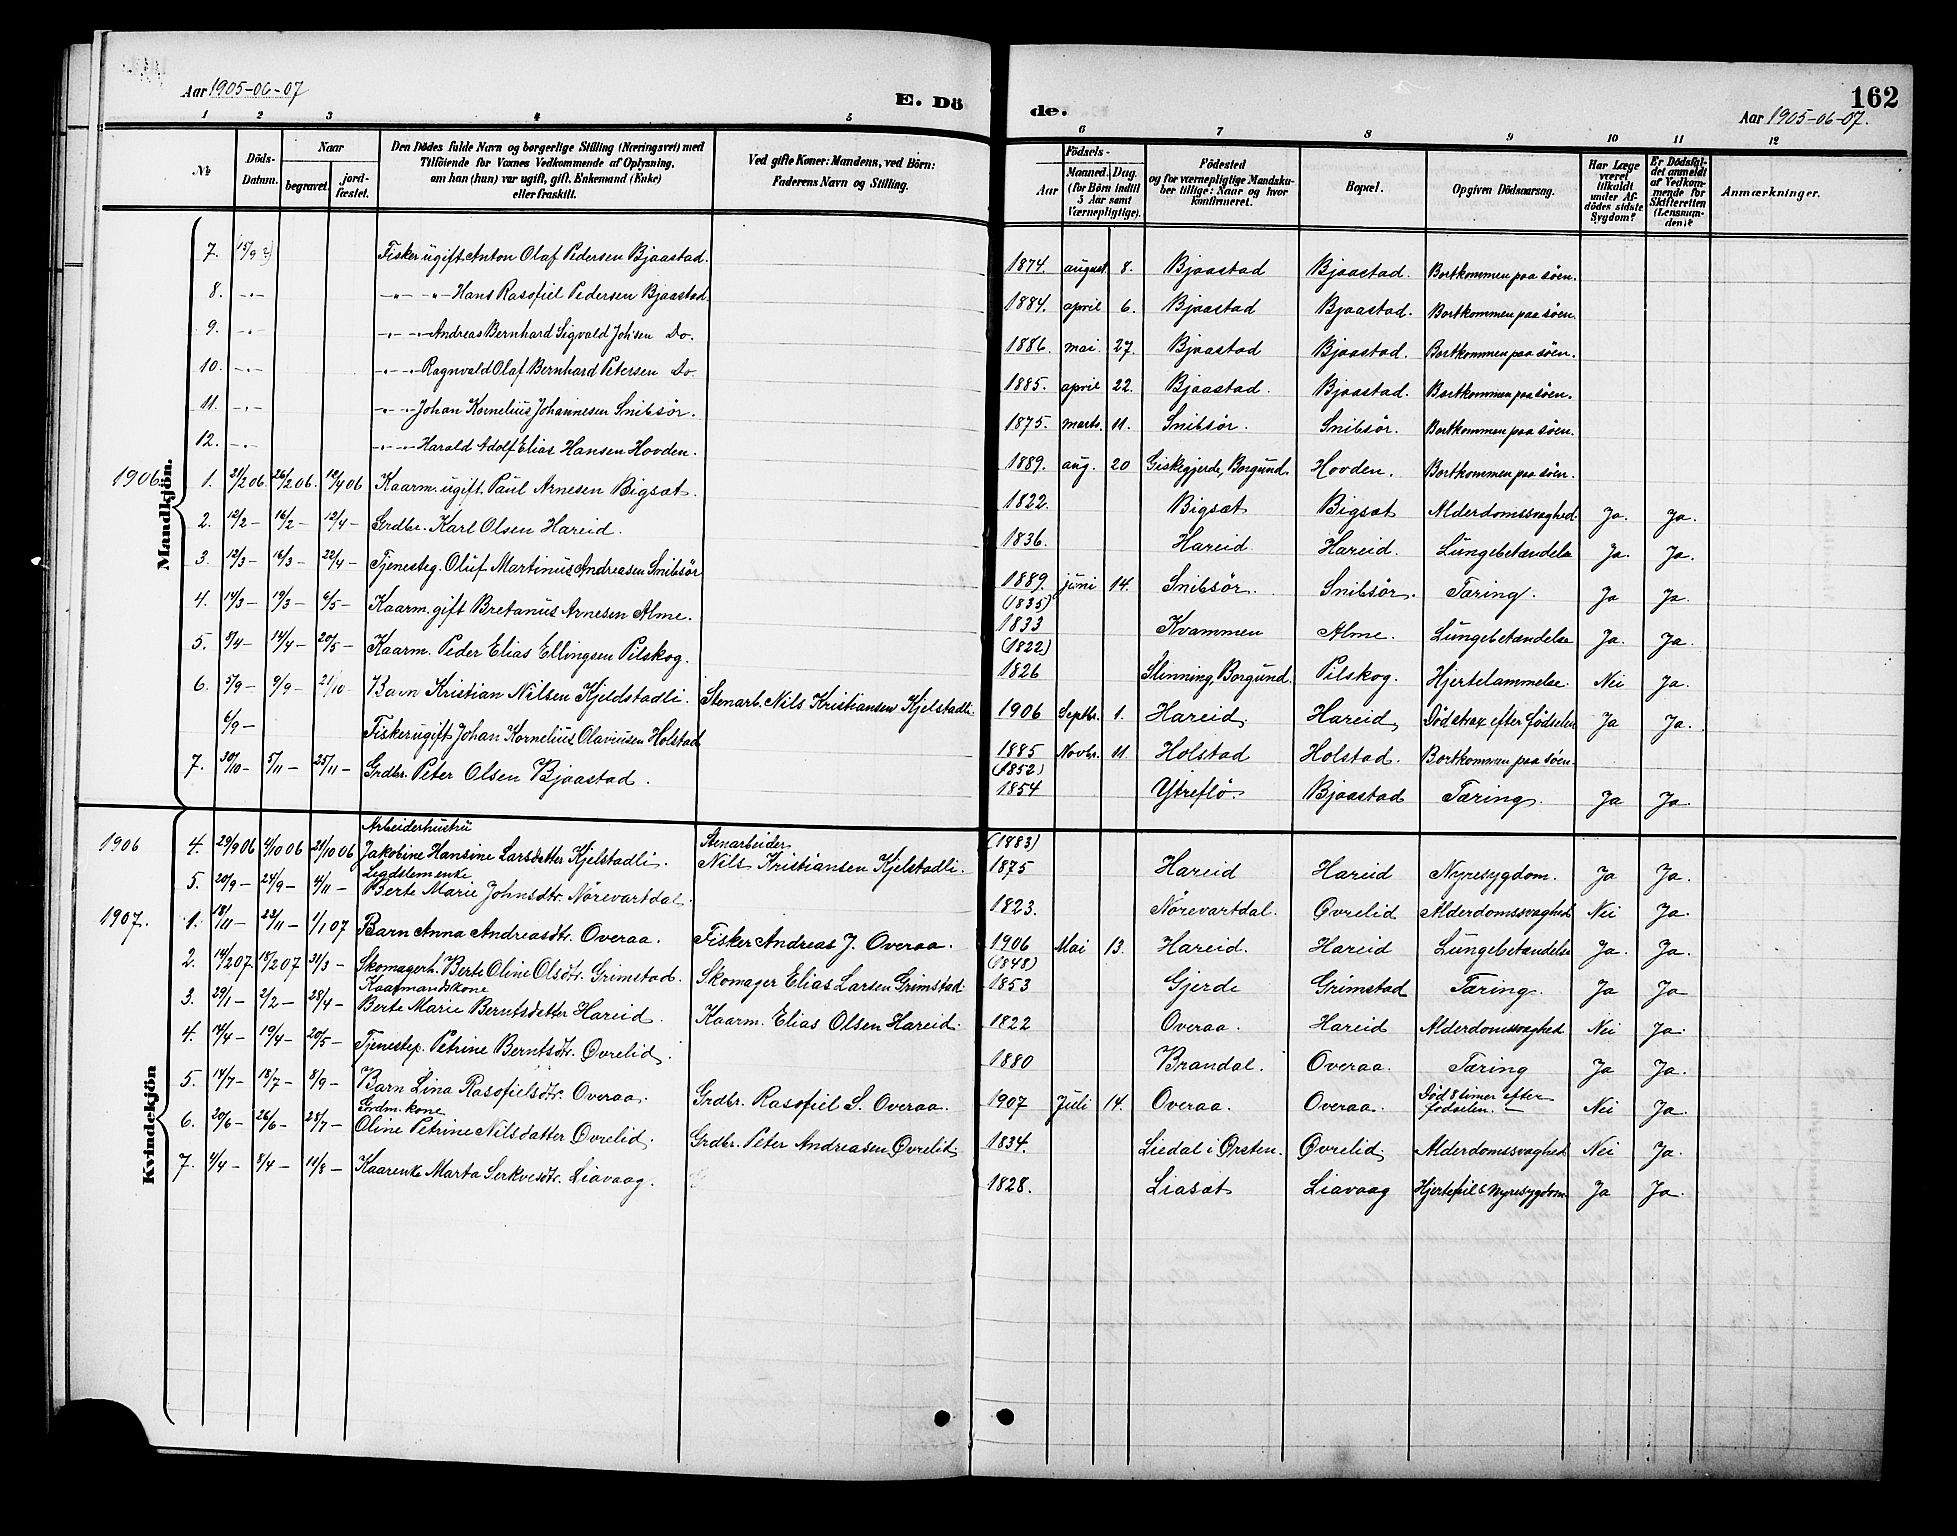 Aar 1905-06-07
E. Dö
de.
162
Aar 1905-06-07.
1 2 3 4 5 6 7 8 9 10 11 12
№
Döds-Datum.
Naar
begravet.
jord-fæstet.
Den Dödes fulde Navn og borgerlige Stilling (Næringsvei) med
Tilföiende for Voxnes Vedkommende af Oplysning,
om han (hun) var ugift, gift, Enkemand (Enke)
eller fraskilt.
Ved gifte Koner: Mandens, ved Börn:
Faderens Navn og Stilling.
Födsels-
Aar
Maaned. Dag.
(for Börn indtil 5 Aar samt Værnepligtige).
Födested
og for værnepligtige Mandskaber tillige: Naar og hvor konfirmeret.
Bopæl.
Opgiven Dödsaarsag.
Har Læge været tilkaldt under Afdödes sidste Sygdom?
Er Dödsfaldet anmeldt af Vedkommende for Skifteretten (Lensmanden)?
Anmærkninger.
Mandkjön.
7. 15/9 Fisker ugift Anton Olaf Pedersen Bjaastad. 1874. august 8. Bjaastad Bjaastad. Bortkommen paa söen.
8. -"- -"- -"- Hans Rasofiel Pedersen Bjaastad. 1884. april 6. Bjaastad Bjaastad. Bortkommen paa söen.
9. -"- -"- -"- Andreas Bernhard Sigvald Johsen Do. 1886. mai. 27. Bjaastad Bjaastad. Bortkommen paa söen.
10. -"- -"- -"- Ragnvald Olaf Bernhard Petersen Do. 1885. april 22. Bjaastad. Bjaastad. Bortkommen paa söen.
11. -"- -"- -"- Johan Kornelius Johannesen Snibsör. 1875. marts. 11. Snibsör. Snibsör. Bortkommen paa söen.
12. -"- -"- -"- Harald Adolf Elias Hansen Hovden. 1889. aug. 20 Giskegjerde, Borgund. Hovden. Bortkommen paa söen.
1906 1. 21/2 06. 26/2 06. 12/4 06 Kaarm. ugift. Paul Arnesen Bigsæt. 1822. Bigsæt Bigsæt Alderdomssvaghed. Ja. Ja.
2. 12/2 - 16/2 - 12/4 - Grdbr. Karl Olsen Hareid. 1836. Hareid Hareid. Lungebetændelse Ja. Ja.
3. 12/3 - 16/3 - 22/4 - Tjenesteg. Oluf Martinus Andreasen Snibsör 1889. juni 14. Snibsör. Snibsör. Tæring. Ja Ja
4. 14/3 - 19/3 - 6/5 - Kaarm. gift Bretanus Arnesen Alme. (1835) 1833 Kvammen Alme. Lungebetændelse Ja. Ja.
5. 8/4 - 14/4 - 20/5 - Kaarm. Peder Elias Ellingsen Pilskog. (1822) 1826 Slinning, Borgund. Pilskog. Hjertelammelse. Nei Ja.
6. 5/9 - 9/9 - 21/10 - Barn Kristian Nilsen Kjeldstadli. Stenarb. Nils Kristiansen Kjelstadli. 1906 Septbr. 1. Hareid. Hareid, Död strax efter födselen Ja Ja.
6/9 - Fisker ugift Johan Kornelius Olaviusen Holstad 1885 Novbr. 11. Holstad Holstad. Bortkommen paa söen.
7. 30/10 - 5/11 - 25/11 - Grdbr. Peter Olsen Bjaastad. (1852) 1854 Ytreflö. Bjaastad Tæring. Ja Ja.
Kvindekjön
1906 4. 29/9 06 4/10 06 21/10 06 Arbeiderhustru Jakobine Hansine Larsdatter Kjelstadli. Stenarbeider Nils Kristiansen Kjelstadli. (1883) 1875 Hareid Hareid Nyresygdom. Ja Ja.
5. 20/9 - 24/9 - 4/11 - Legdslemenke Berte Marie Johnsdtr. Nörevartdal. 1823. Nörevartdal. Övrelid Alderdomssvaghed Nei Ja.
1907. 1. 18/11 - 23/11 - 1/1 07 Barn Anna Andreasdtr. Overaa. Fisker Andreas J. Overaa. 1906 Mai 13. Hareid. Hareid Lungebetændelse Ja. Ja.
2. 14/2 07. 18/2 07 31/3 - Skomagerh. Berte Oline Olsdtr. Grimstad. Skomager Elias Larsen Grimstad. (1848) 1853 Gjerde Grimstad Tæring. Ja Ja
3. 29/1 - 2/2 - 28/4 - Kaarmandskone Berte Marie Berntsdatter Hareid. Kaarm. Elias Olsen Hareid. 1822 Overaa. Hareid Alderdomssvaghed Nei Ja.
4. 14/4 - 19/4 - 20/5 - Tjenestep. Petrine Berntsdtr. Övrelid. 1880 Brandal. Overaa. Tæring Ja Ja.
5. 14/7 - 18/7 - 8/9 - Barn Lina Rasofielsdtr. Overaa. Grdbr. Rasofiel S. Overaa. 1907 Juli 14. Overaa. Overaa. Död 8 timer efter födselen. Nei Ja.
6. 20/6 - 26/6 - 28/7 - Grdm. kone Oline Petrine Nilsdatter Övrelid. Grdbr. Peter Andreasen Övrelid. 1834. Liedal i Örsten. Övrelid. Alderdomssvaghed Nei Ja.
7. 4/4 - 8/4 - 11/8 - Kaarenke Marta Serkvesdtr. Liavaag. 1828. Liasæt Liavaag Hjertefeil & Nyresygdom Ja Ja.